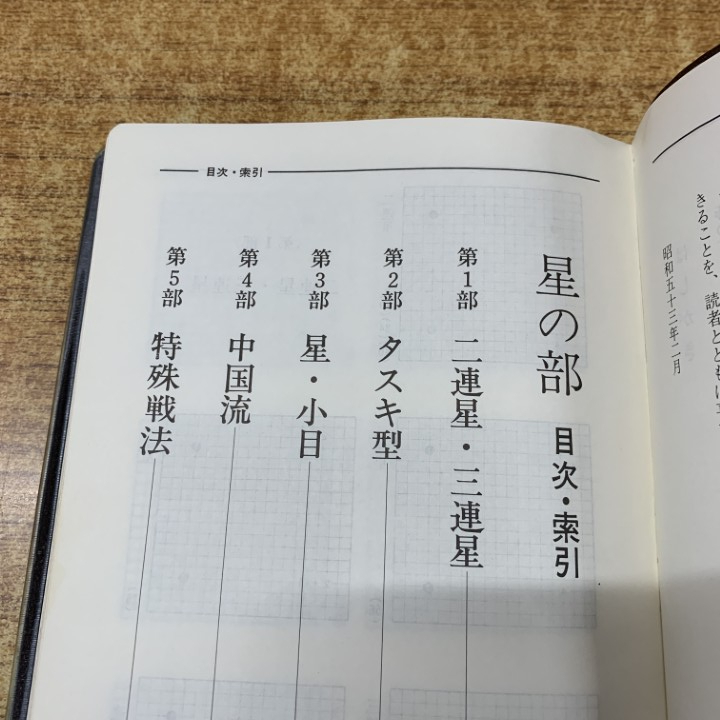 きることを、読者とともに
昭和五十三年二月
目次・索引
星の部 目次・索引
第1部 二連星・三連星
第2部 タスキ型
第3部 星・小目
第4部 中国流
第5部 特殊戦法